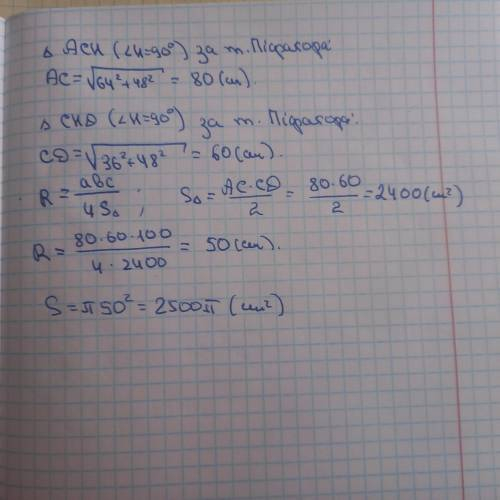 Δ ACH (∠H=90°) за т. Піфагора:
AC=√64²+48² = 80 (см).
Δ CHD (∠H=90°) за т. Піфагора:
CD=√36²+48² = 60 (см).
R = abc/4S△ ; S△ = AC·CD/2 = 80·60/2 = 2400 (см²)
R = 80·60·100/4·2400 = 50 (см).
S = π50² = 2500π (см²)